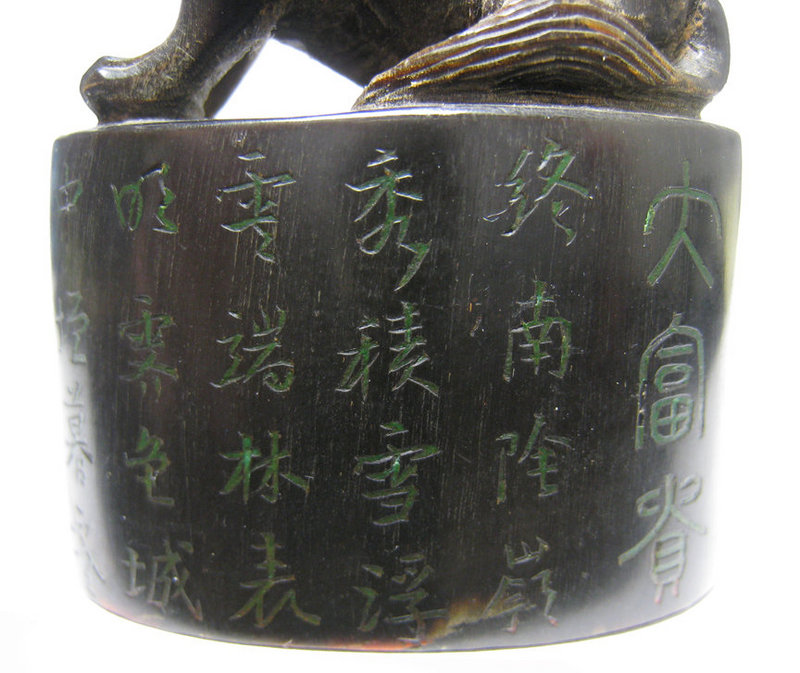 大富貴
終南陰嶺
秀積雪浮
雲端林表
明霽色城
中增暮寒